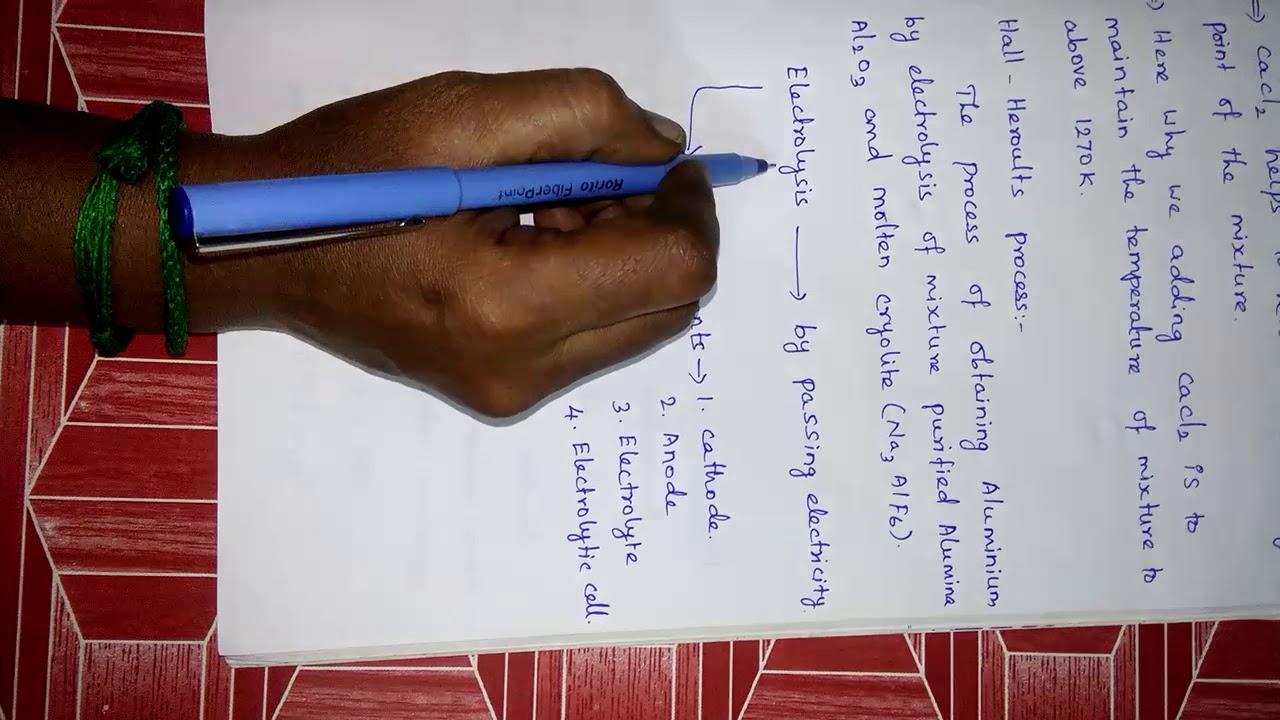 => cacl2 helps
point of the mixture.
=) Here why we adding cacl2 is to
maintain the temperature of mixture to
above 1270K.
Hall - Heroults process:-
The process of obtaining Aluminium
by electrolysis of mixture purified Alumina
Al2O3 and molten cryolite (Na3 AlF6).
Electrolysis ⟶ by passing electricity.
nts → 1. cathode.
2. Anode
3. Electrolyte
4. Electrolytic cell.
Rorito FiberPoint